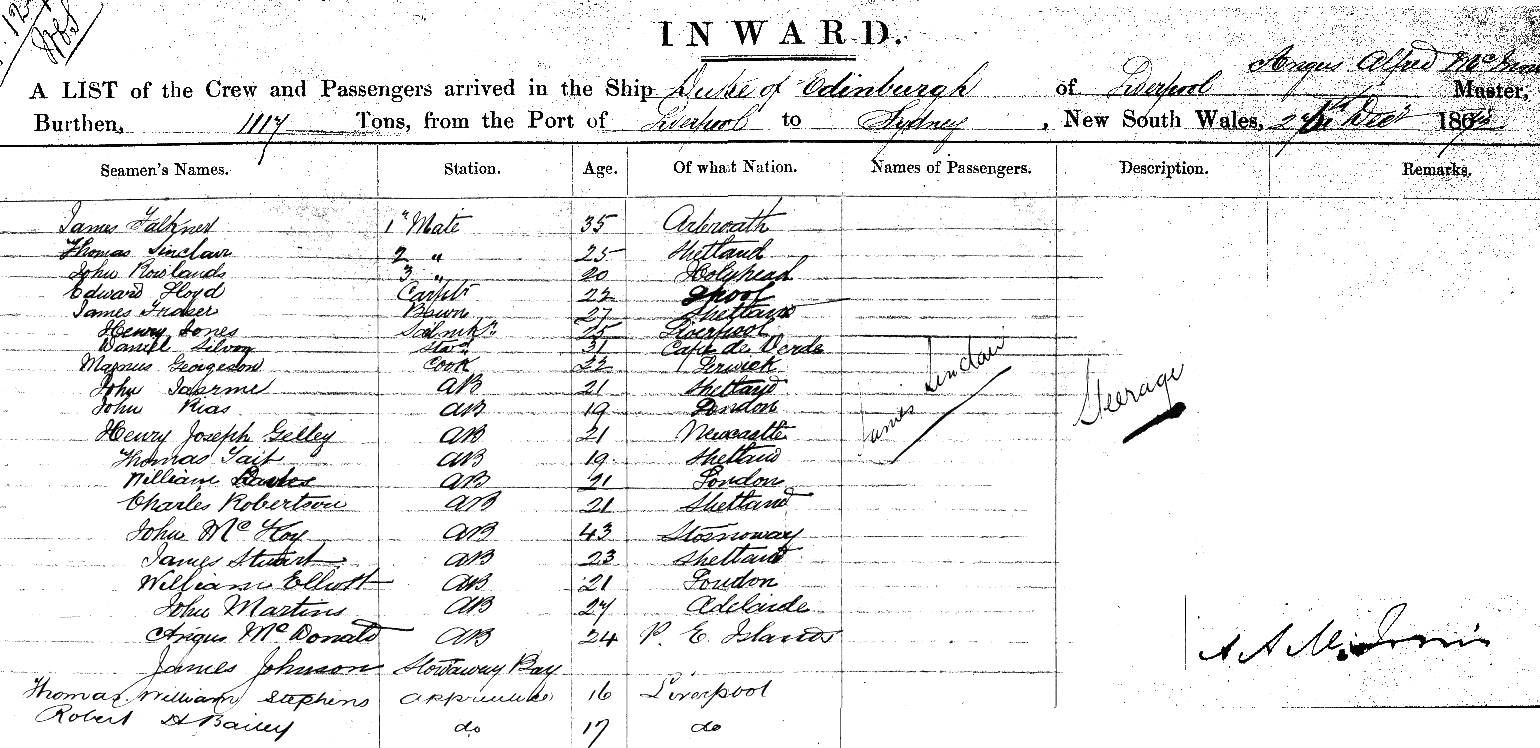 INWARD.
Angus Alfred
A LIST of the Crew and Passengers arrived in the Ship Duke of Edinburgh of Liverpool Master,
Burthen, 1117 Tons, from the Port of Liverpool to Sydney, New South Wales, Decr 186
Seamen's Names. Station. Age. Of what Nation. Names of Passengers. Description. Remarks.
James Falkner 1st Mate 35 Arbroath
Thomas Sinclair 2 " 25 Shetland
John Rowlands 3 " 20 Holyhead
Edward Lloyd Carptr 22 Lpool
James Fraser Bswn 27 Shetland
Henry Jones Sailmkr 25 Liverpool
Daniel Silvoy Stwd 31 Cape de Verde
Magnus Georgeson Cook 22 Lerwick
John AB 21 Shetland
John Rias AB 19 London
James Sinclair Steerage
Henry Joseph Gelley AB 21 Newcastle
Thomas Tait AB 19 Shetland
William Davies AB 21 London
Charles Robertson AB 21 Shetland
John McKoy AB 43 Stornoway
James Stuart AB 23 Shetland
William Elliott AB 21 London
John Martins AB 27 Adelaide
Angus McDonald AB 24 P. E. Islands
James Johnson Stowaway Boy
Thomas William Stephens apprentice 16 Liverpool
Robert H Bailey do 17 do